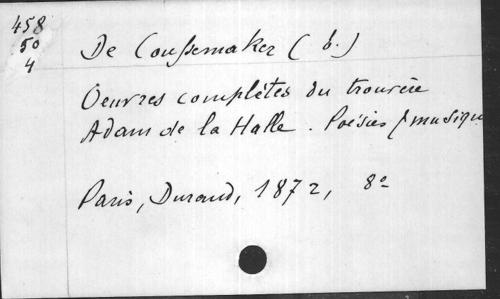 458
50
4
De Coussemaker (b.)
Oeuvres complètes du trouvère
Adam de la Halle. Poésies & musique
Paris, Durand, 1872, 8º